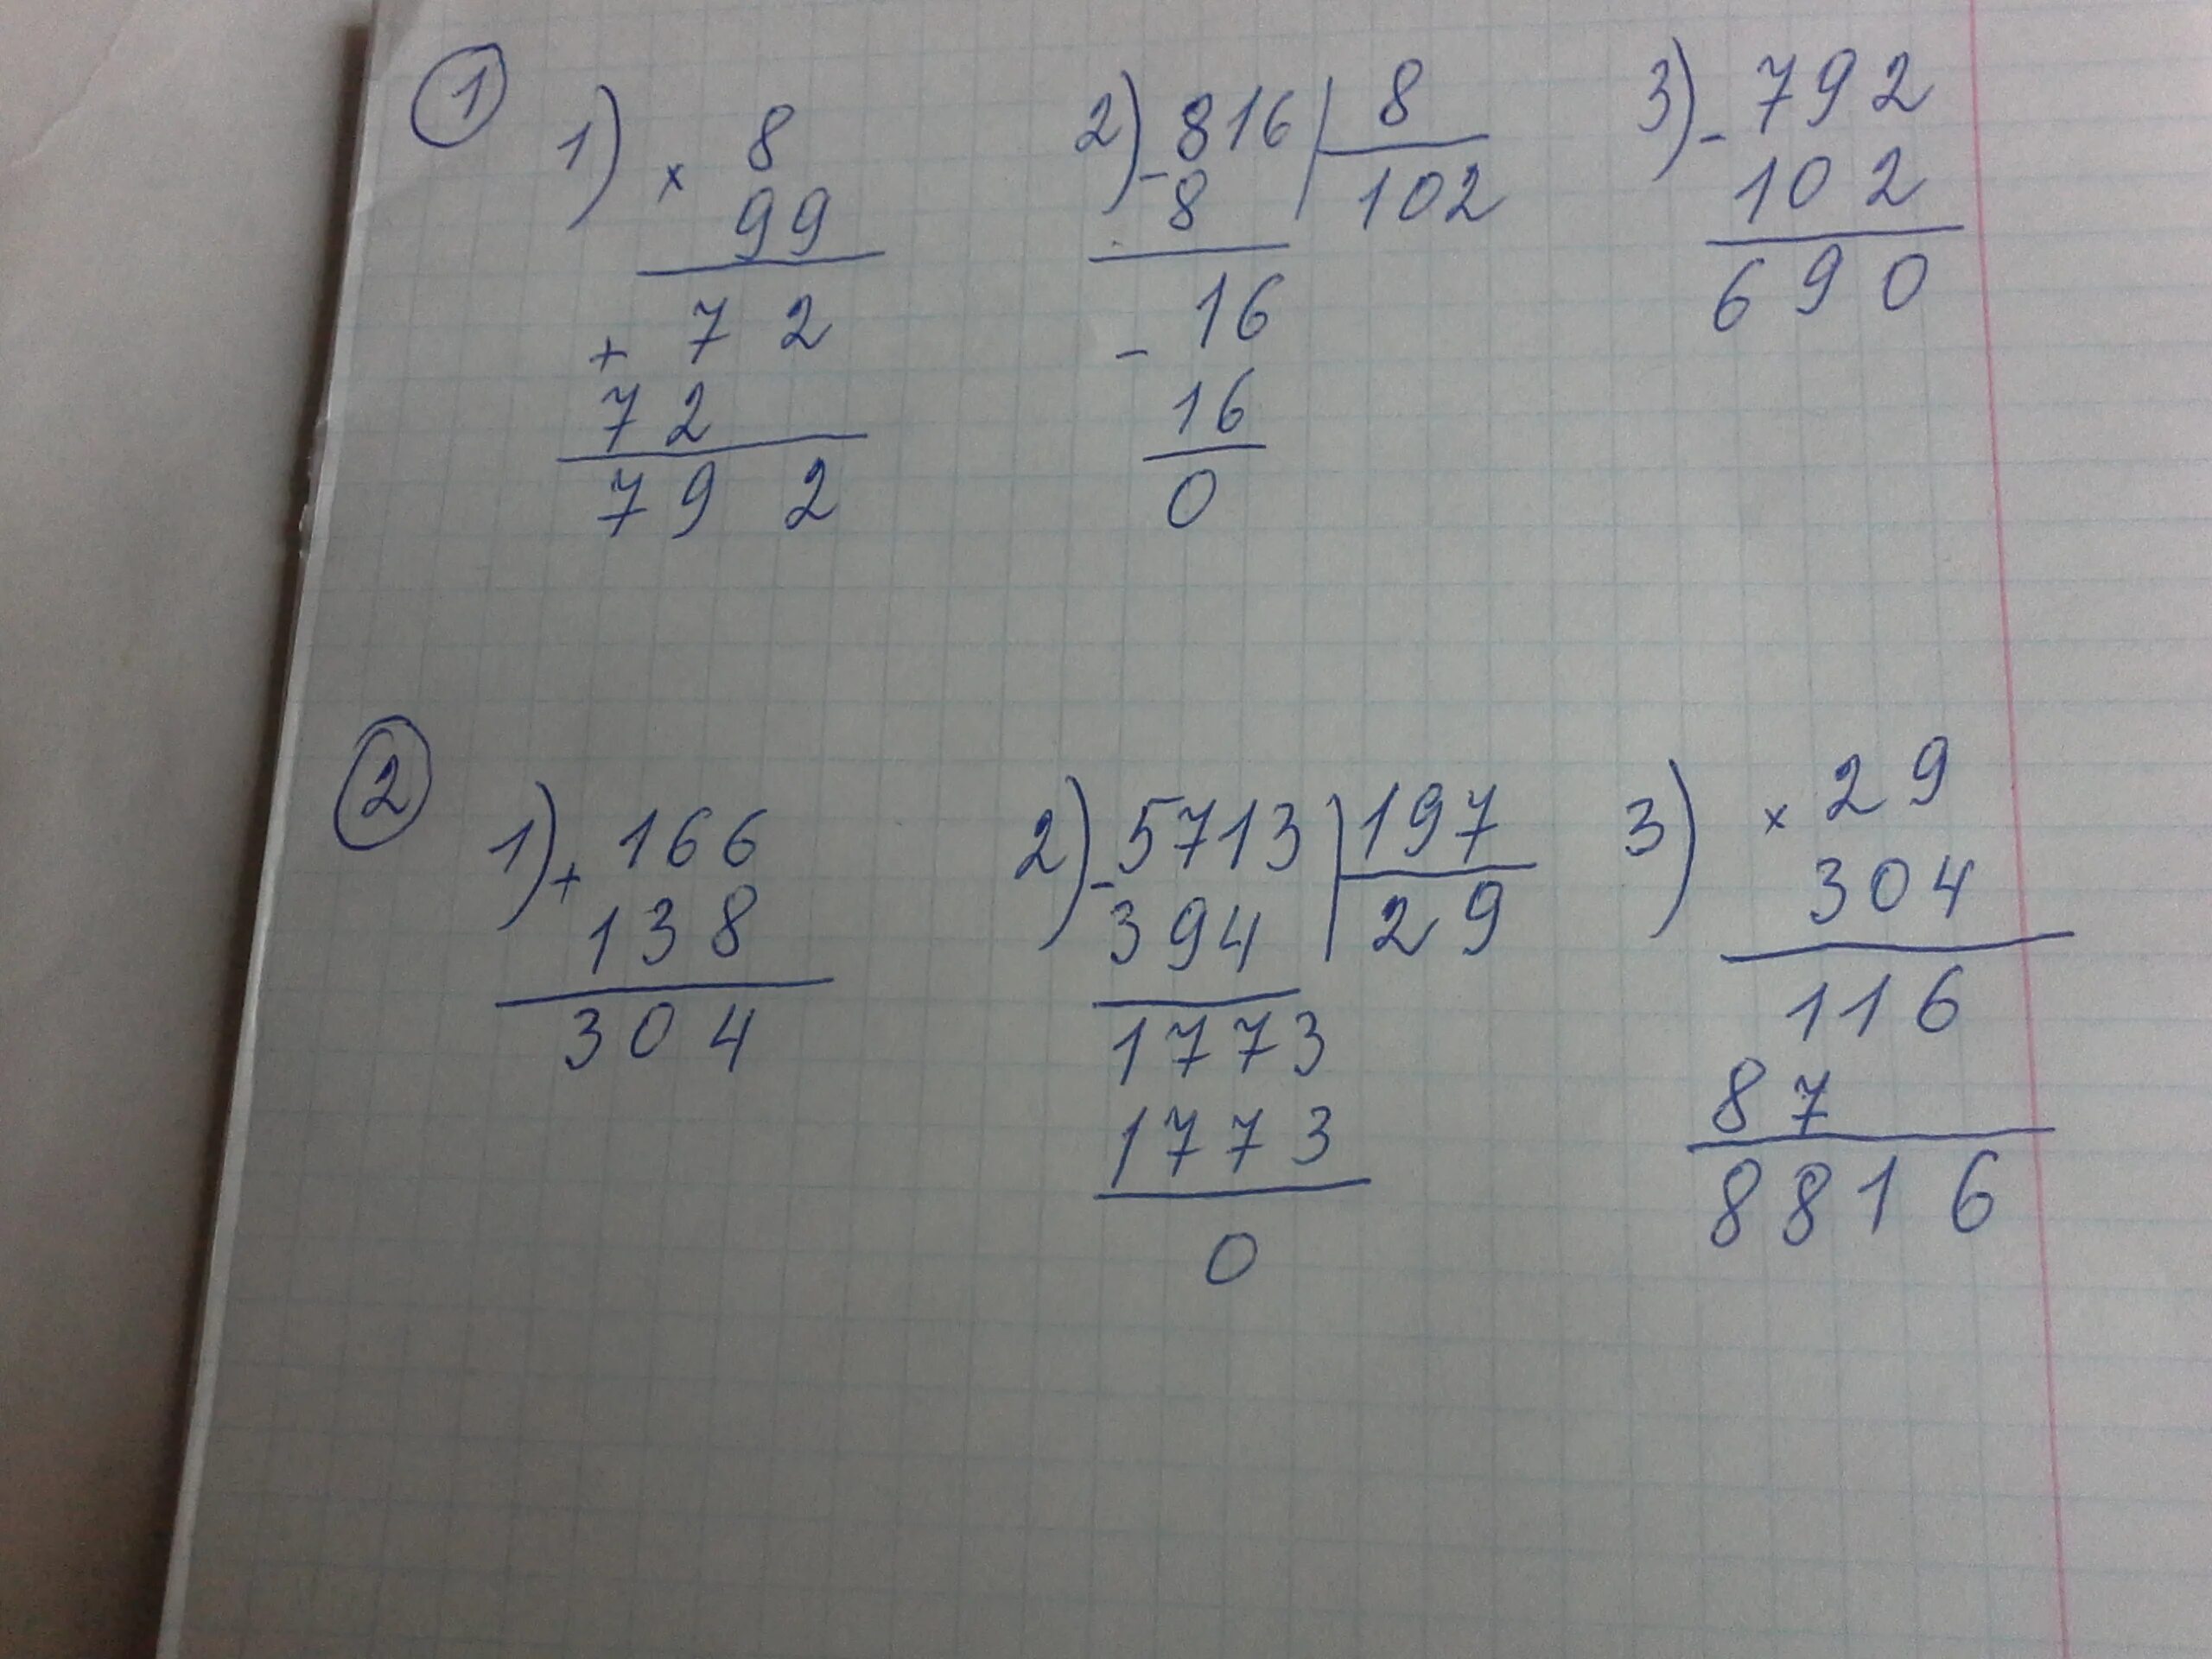 ①
1) × 8
99
72
+
72
792
2) - 816 | 8
8 102
16
-
16
0
3) - 792
102
690
②
1) + 166
138
304
2) - 5713 | 197
394 29
1773
1773
0
3) × 29
304
116
87
8816